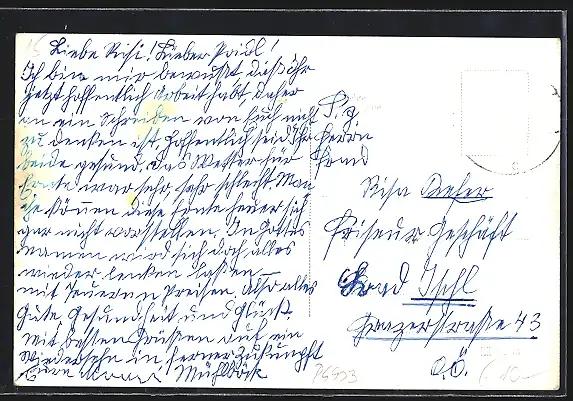 Liebe Risi! Lieber Poidl!
Ich bin mir bewußt, daß Ihr
jetzt hoffentlich Arbeit habt, daher
an ein Schreiben von Euch nicht
zu denken ist. Hoffentlich seid Ihr
beide gesund. Das Wetter für
heute war sehr, sehr schlecht. Man
können diese Leute heuer sich
gar nicht vorstellen. In Gottes
Namen wird sich doch alles
wieder lenken lassen
mit teueren Preisen. Also alles
Gute Gesundheit und Glück.
Mit besten Grüßen auf ein
Wiedersehn in ferner Zukunft
Eure Mühlböck
Herrn
Frau
Risa
Friseur Geschäft
Bad Ischl
Grazerstraße 43
O.Ö.
P6953
10